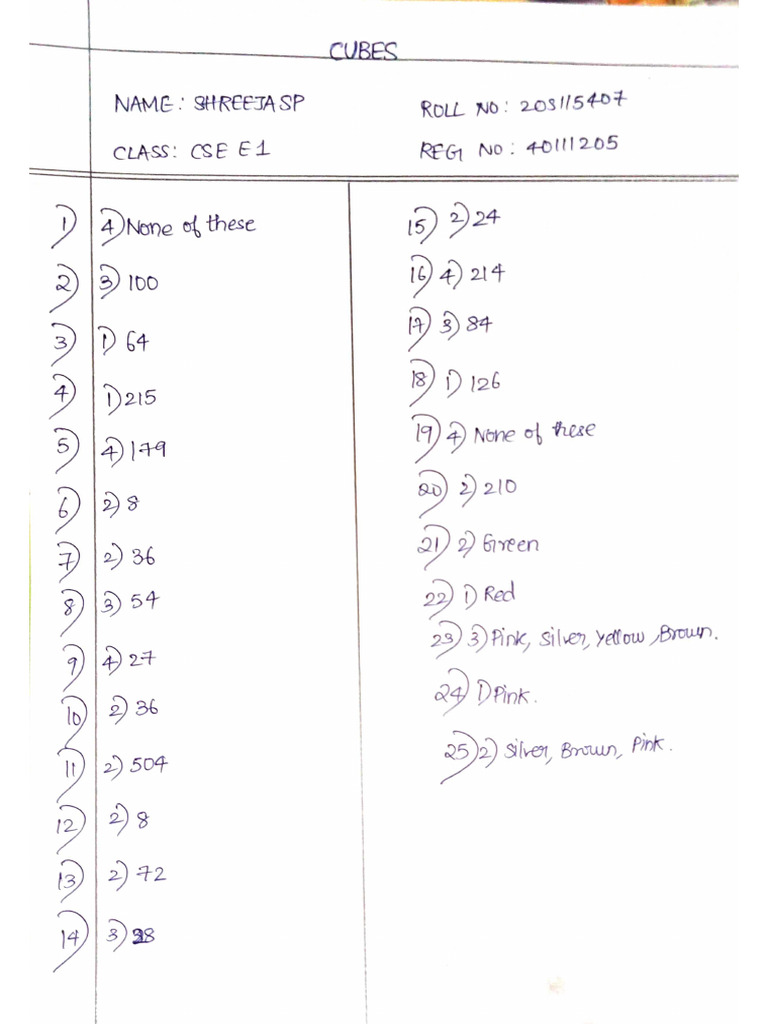 CUBES
NAME: SHREEJA SP
ROLL NO: 203115407
CLASS: CSE E1
REG NO: 40111205
1) 4) None of these
2) 3) 100
3) 1) 64
4) 1) 215
5) 4) 179
6) 2) 8
7) 2) 36
8) 3) 54
9) 4) 27
10) 2) 36
11) 2) 504
12) 2) 8
13) 2) 72
14) 3)
15) 2) 24
16) 4) 214
17) 3) 84
18) 1) 126
19) 4) None of these
20) 2) 210
21) 2) Green
22) 1) Red
23) 3) Pink, Silver, Yellow, Brown.
24) 1) Pink.
25) 2) Silver, Brown, Pink.